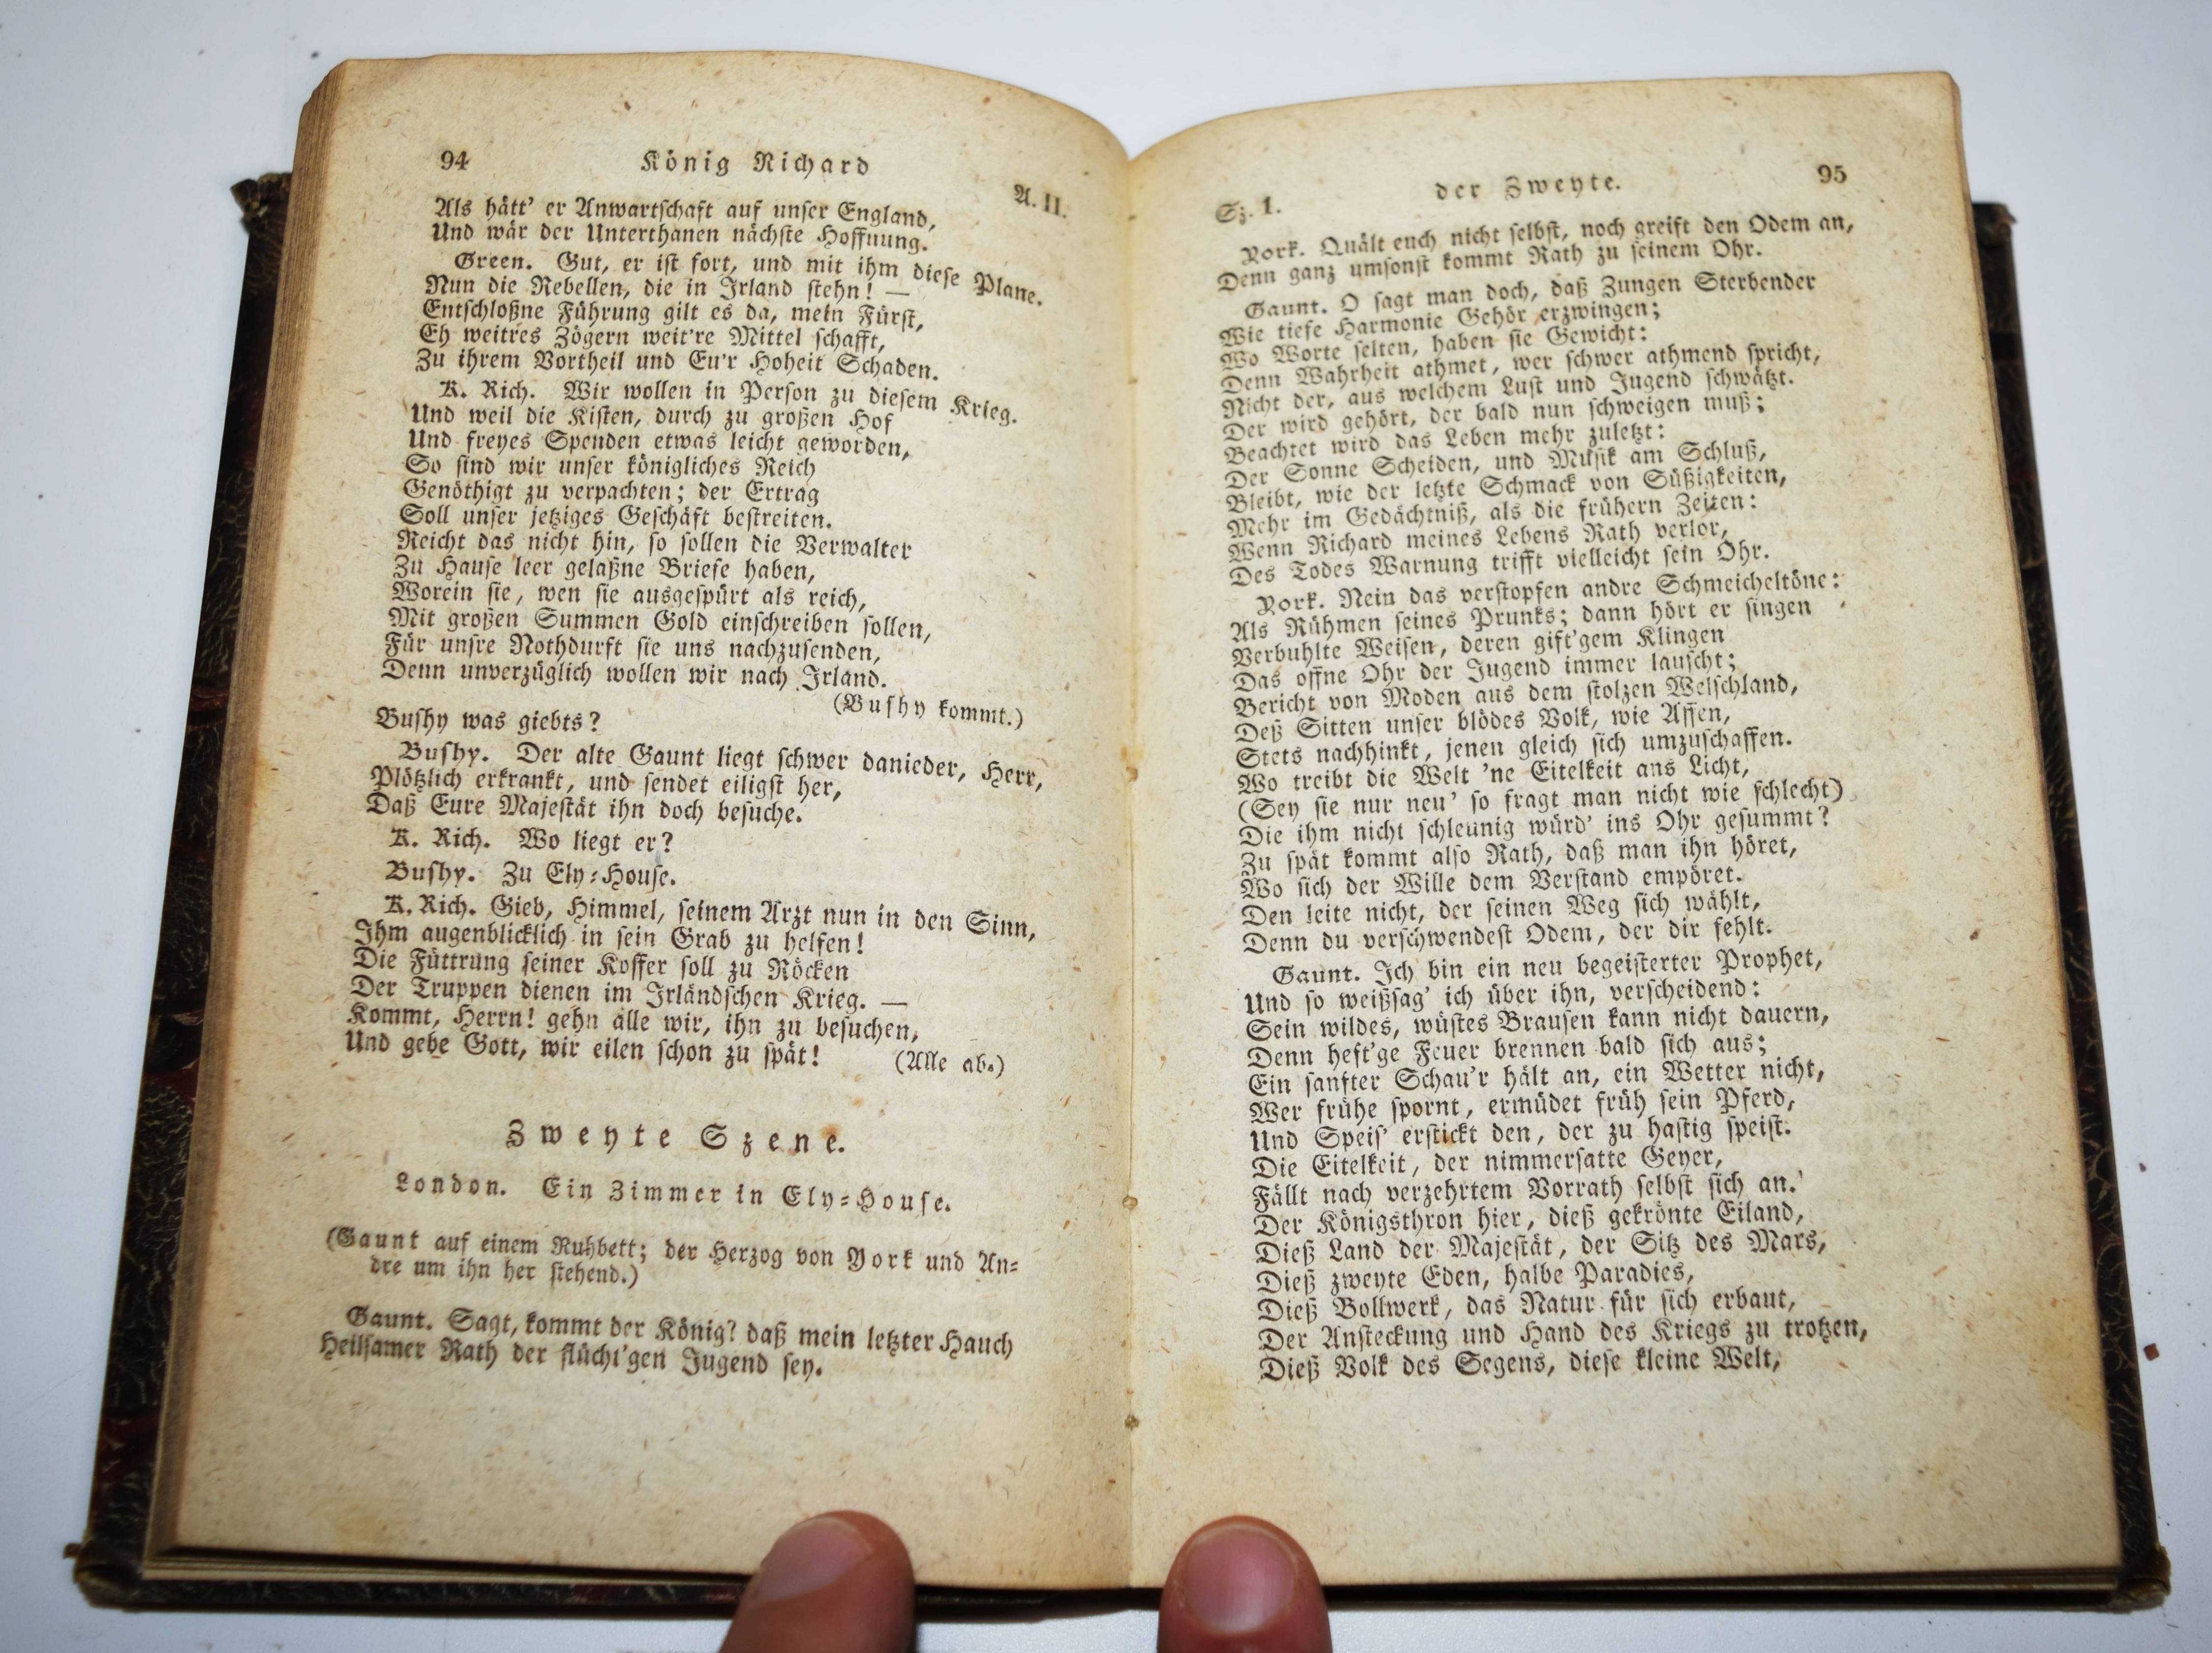 94 König Richard A. II.
Als hätt' er Anwartschaft auf unser England,
Und wär der Unterthanen nächste Hoffnung.
Green. Gut, er ist fort, und mit ihm diese Plane.
Nun die Rebellen, die in Irland stehn! —
Entschloßne Führung gilt es da, mein Fürst,
Eh weitres Zögern weit're Mittel schafft,
Zu ihrem Vortheil und Eu'r Hoheit Schaden.
K. Rich. Wir wollen in Person zu diesem Krieg.
Und weil die Kisten, durch zu großen Hof
Und freyes Spenden etwas leicht geworden,
So sind wir unser königliches Reich
Genöthigt zu verpachten; der Ertrag
Soll unser jetziges Geschäft bestreiten.
Reicht das nicht hin, so sollen die Verwalter
Zu Hause leer gelaßne Briefe haben,
Worein sie, wen sie ausgespürt als reich,
Mit großen Summen Gold einschreiben sollen,
Für unsre Nothdurft sie uns nachzusenden,
Denn unverzüglich wollen wir nach Irland.
(Bushy kommt.)
Bushy was giebts?
Bushy. Der alte Gaunt liegt schwer danieder, Herr,
Plötzlich erkrankt, und sendet eiligst her,
Daß Eure Majestät ihn doch besuche.
K. Rich. Wo liegt er?
Bushy. Zu Ely-House.
K. Rich. Gieb, Himmel, seinem Arzt nun in den Sinn,
Ihm augenblicklich in sein Grab zu helfen!
Die Füttrung seiner Koffer soll zu Röcken
Der Truppen dienen im Irländschen Krieg. —
Kommt, Herrn! gehn alle wir, ihn zu besuchen,
Und gebe Gott, wir eilen schon zu spät! (Alle ab.)
Zweyte Szene.
London. Ein Zimmer in Ely-House.
(Gaunt auf einem Ruhbett; der Herzog von York und An-
dre um ihn her stehend.)
Gaunt. Sagt, kommt der König? daß mein letzter Hauch
Heilsamer Rath der flücht'gen Jugend sey.
Sz. 1. der Zweyte. 95
York. Quält euch nicht selbst, noch greift den Odem an,
Denn ganz umsonst kommt Rath zu seinem Ohr.
Gaunt. O sagt man doch, daß Zungen Sterbender
Wie tiefe Harmonie Gehör erzwingen;
Wo Worte selten, haben sie Gewicht:
Denn Wahrheit athmet, wer schwer athmend spricht,
Nicht der, aus welchem Lust und Jugend schwätzt.
Der wird gehört, der bald nun schweigen muß;
Beachtet wird das Leben mehr zuletzt:
Der Sonne Scheiden, und Musik am Schluß,
Bleibt, wie der letzte Schmack von Süßigkeiten,
Mehr im Gedächtniß, als die frühern Zeiten:
Wenn Richard meines Lebens Rath verlor,
Des Todes Warnung trifft vielleicht sein Ohr.
York. Nein das verstopfen andre Schmeicheltöne:
Als Rühmen seines Prunks; dann hört er singen
Verbuhlte Weisen, deren gift'gem Klingen
Das offne Ohr der Jugend immer lauscht;
Bericht von Moden aus dem stolzen Welschland,
Deß Sitten unser blödes Volk, wie Affen,
Stets nachhinkt, jenen gleich sich umzuschaffen.
Wo treibt die Welt 'ne Eitelkeit ans Licht,
(Sey sie nur neu' so fragt man nicht wie schlecht)
Die ihm nicht schleunig würd' ins Ohr gesummt?
Zu spät kommt also Rath, daß man ihn höret,
Wo sich der Wille dem Verstand empöret.
Den leite nicht, der seinen Weg sich wählt,
Denn du verschwendest Odem, der dir fehlt.
Gaunt. Ich bin ein neu begeisterter Prophet,
Und so weißsag' ich über ihn, verscheidend:
Sein wildes, wüstes Brausen kann nicht dauern,
Denn heft'ge Feuer brennen bald sich aus;
Ein sanfter Schau'r hält an, ein Wetter nicht,
Wer frühe spornt, ermüdet früh sein Pferd,
Und Speis' erstickt den, der zu hastig speist.
Die Eitelkeit, der nimmersatte Geyer,
Fällt nach verzehrtem Vorrath selbst sich an.
Der Königsthron hier, dieß gekrönte Eiland,
Dieß Land der Majestät, der Sitz des Mars,
Dieß zweyte Eden, halbe Paradies,
Dieß Bollwerk, das Natur für sich erbaut,
Der Ansteckung und Hand des Kriegs zu trotzen,
Dieß Volk des Segens, diese kleine Welt,